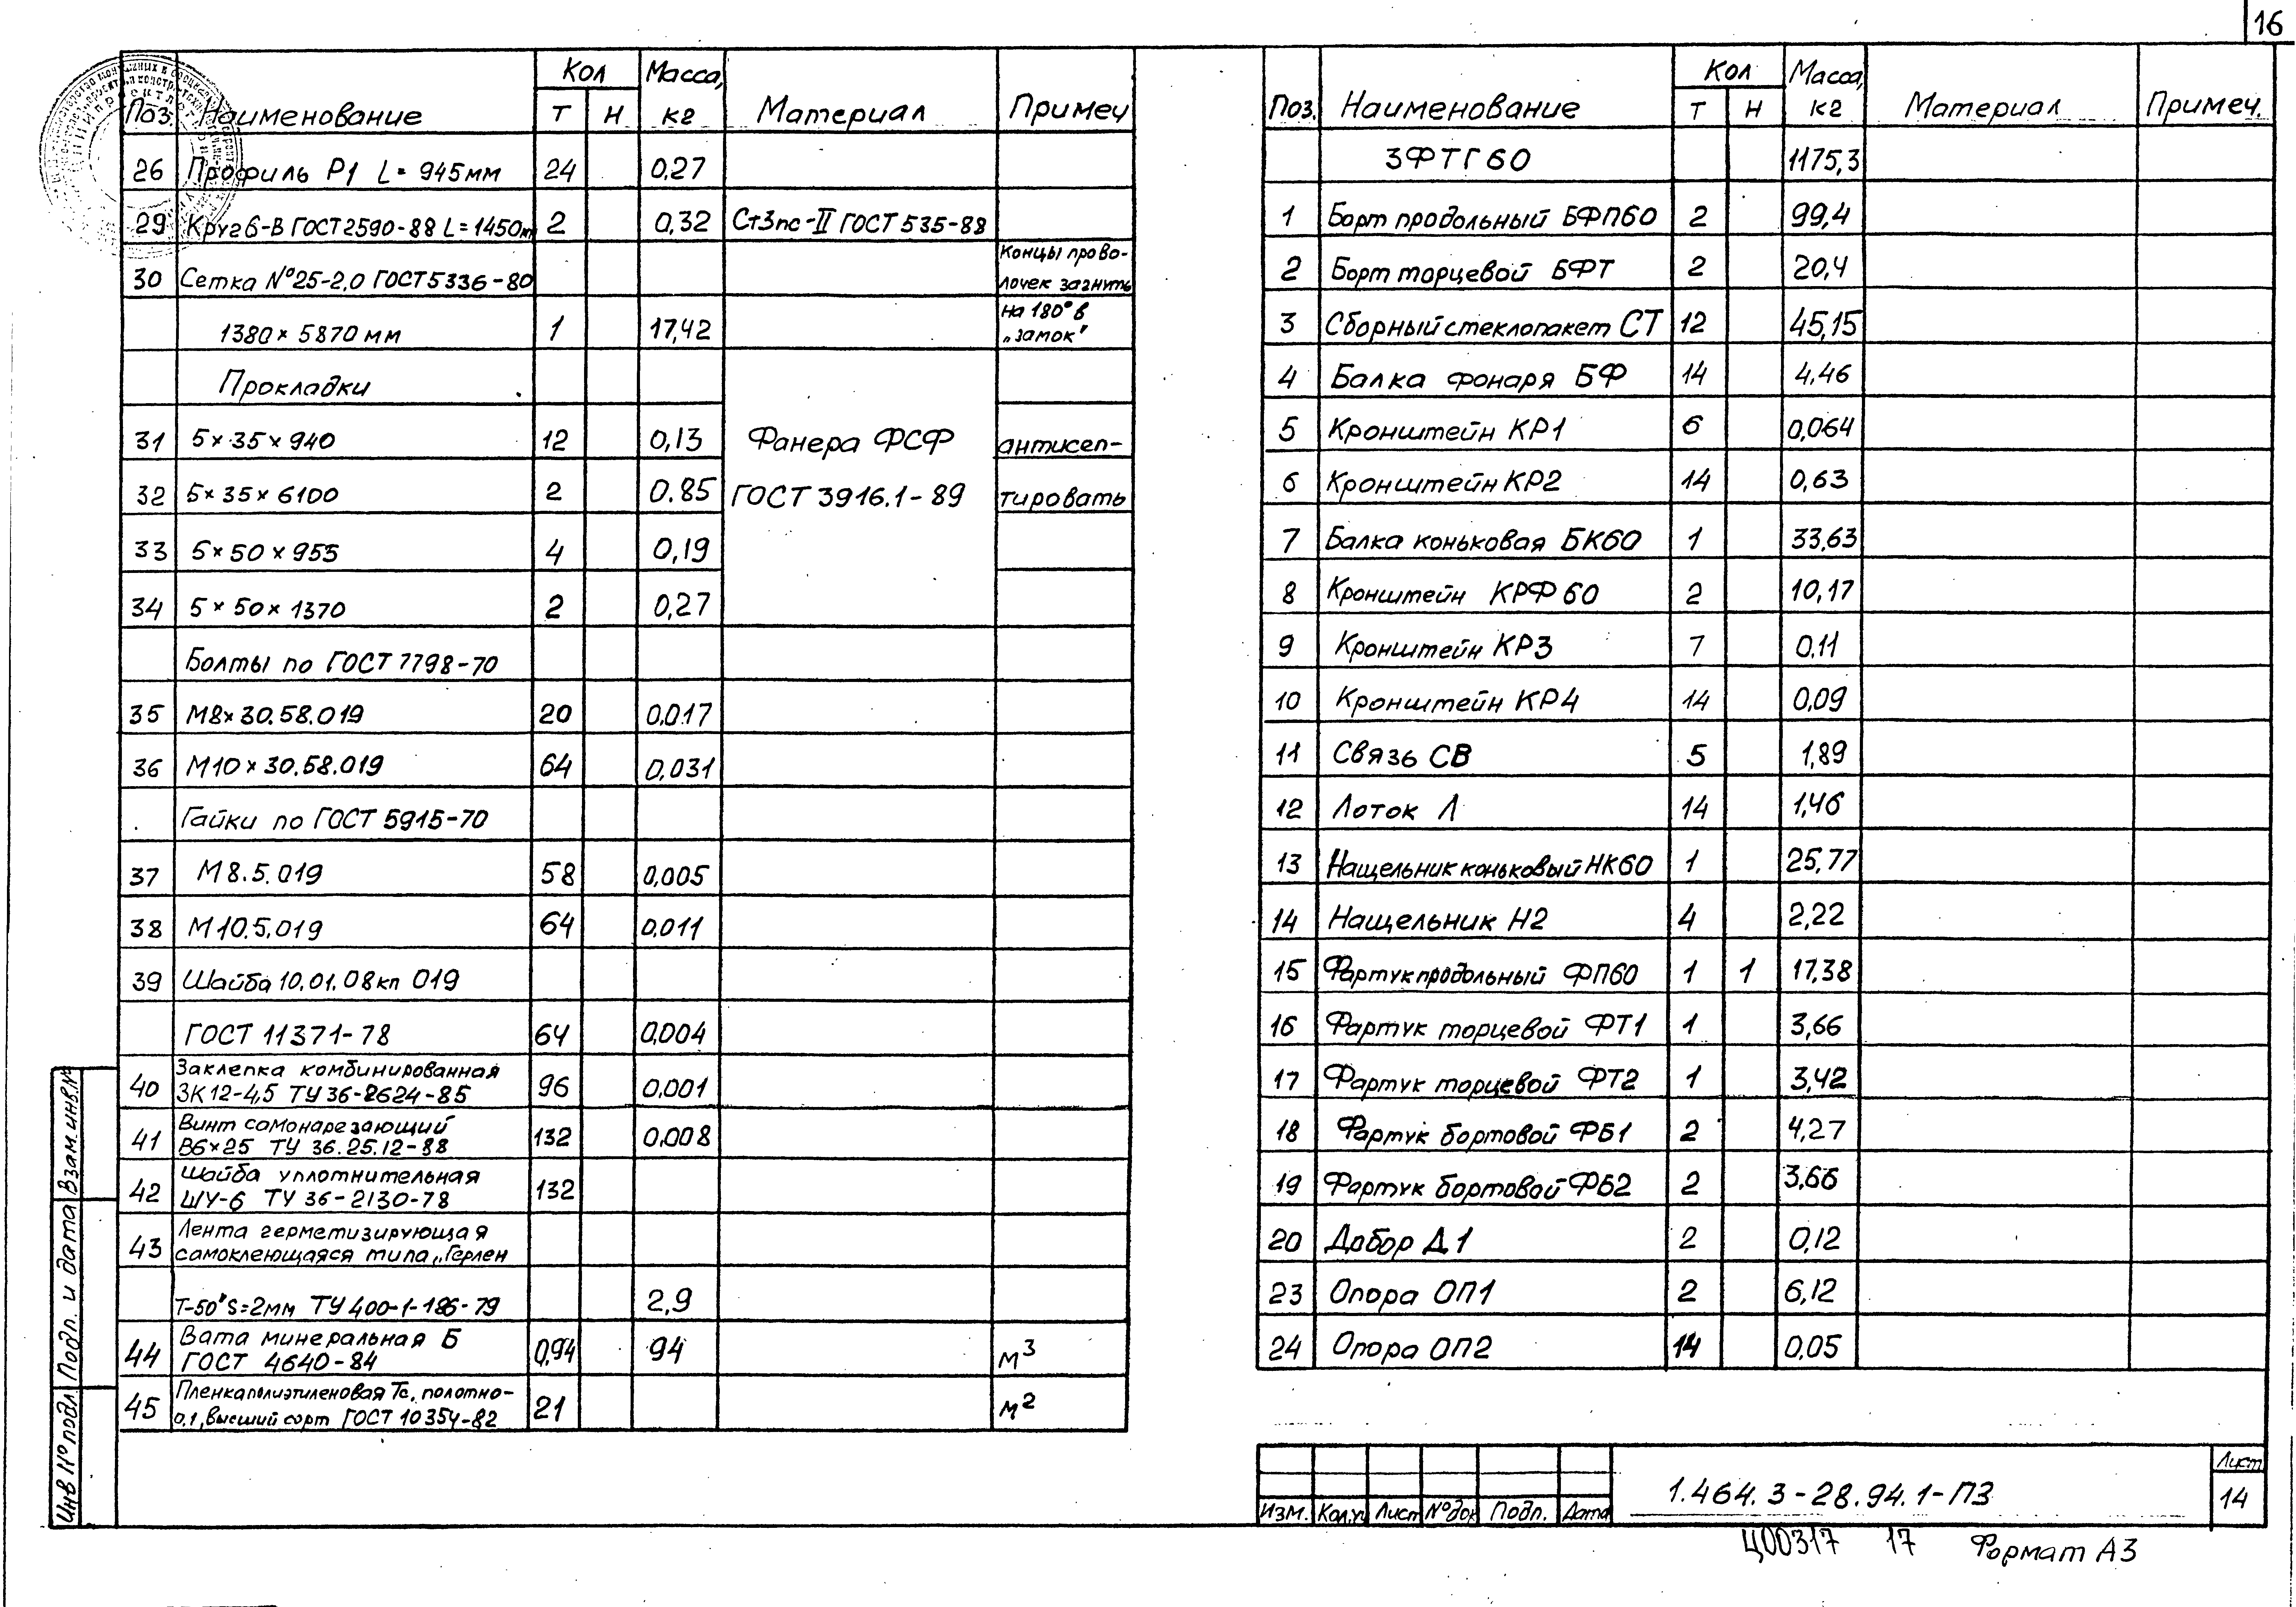 16
Поз. Наименование Кол Масса, кг Материал Примеч
Т Н
26 Профиль Р1 L= 945мм 24 0,27
29 Круг 6-В ГОСТ 2590-88 L=1450м 2 0,32 Ст3пс-II ГОСТ 535-88
30 Сетка №25-2,0 ГОСТ 5336-80 Концы прово-
лочек загнуть
1380×5870 мм 1 17,42 на 180° в
„замок"
Прокладки
31 5×35×940 12 0,13 Фанера ФСФ антисеп-
32 5×35×6100 2 0.85 ГОСТ 3916.1-89 тировать
33 5×50×955 4 0,19
34 5×50×1370 2 0,27
Болты по ГОСТ 7798-70
35 М8×30.58.019 20 0,017
36 М10×30.58.019 64 0,031
Гайки по ГОСТ 5915-70
37 М8.5.019 58 0,005
38 М10.5.019 64 0,011
39 Шайба 10.01.08кп 019
ГОСТ 11371-78 64 0,004
40 Заклепка комбинированная
ЗК12-4,5 ТУ 36-2624-85 96 0.001
41 Винт самонарезающий
В6×25 ТУ 36.25.12-88 132 0.008
42 Шайба уплотнительная
ШУ-6 ТУ 36-2130-78 132
43 Лента герметизирующая
самоклеющаяся типа „Герлен
Т-50" S=2мм ТУ 400-1-186-79 2,9
44 Вата минеральная Б
ГОСТ 4640-84 0,94 94 м³
45 Пленка полиэтиленовая Тс, полотно-
0,1, высший сорт ГОСТ 10354-82 21 м²
Поз. Наименование Кол Масса, кг Материал Примеч.
Т Н
ЗФТГ60 1175,3
1 Борт продольный БФП60 2 99,4
2 Борт торцевой БФТ 2 20,4
3 Сборный стеклопакет СТ 12 45,15
4 Балка фонаря БФ 14 4,46
5 Кронштейн КР1 6 0,064
6 Кронштейн КР2 14 0,63
7 Балка коньковая БК60 1 33,63
8 Кронштейн КРФ60 2 10,17
9 Кронштейн КР3 7 0,11
10 Кронштейн КР4 14 0,09
11 Связь СВ 5 1,89
12 Лоток Л 14 1,46
13 Нащельник коньковый НК60 1 25,77
14 Нащельник Н2 4 2,22
15 Фартук продольный ФП60 1 1 17,38
16 Фартук торцевой ФТ1 1 3,66
17 Фартук торцевой ФТ2 1 3,42
18 Фартук бортовой ФБ1 2 4,27
19 Фартук бортовой ФБ2 2 3,66
20 Добор Д1 2 0,12
23 Опора ОП1 2 6,12
24 Опора ОП2 14 0,05
Инв № подл Подп. и дата Взам.инв.№
Изм. Кол.уч Лист № док Подп. Дата
1.464.3-28.94.1-ПЗ
Лист
14
Ц00317 17 Формат А3